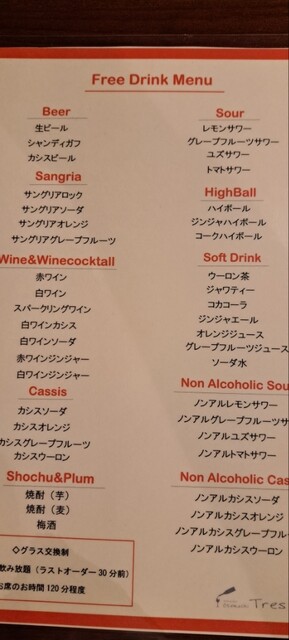 Free Drink Menu
Beer
生ビール
シャンディガフ
カシスビール
Sangria
サングリアロック
サングリアソーダ
サングリアオレンジ
サングリアグレープフルーツ
Wine&Winecocktall
赤ワイン
白ワイン
スパークリングワイン
白ワインカシス
白ワインソーダ
赤ワインジンジャー
白ワインジンジャー
Cassis
カシスソーダ
カシスオレンジ
カシスグレープフルーツ
カシスウーロン
Shochu&Plum
焼酎（芋）
焼酎（麦）
梅酒
◇グラス交換制
飲み放題（ラストオーダー30分前）
お席のお時間120分程度
Sour
レモンサワー
グレープフルーツサワー
ユズサワー
トマトサワー
HighBall
ハイボール
ジンジャハイボール
コークハイボール
Soft Drink
ウーロン茶
ジャワティー
コカコーラ
ジンジャエール
オレンジジュース
グレープフルーツジュース
ソーダ水
Non Alcoholic Sou
ノンアルレモンサワー
ノンアルグレープフルーツサワ
ノンアルユズサワー
ノンアルトマトサワー
Non Alcoholic Cas
ノンアルカシスソーダ
ノンアルカシスオレンジ
ノンアルカシスグレープフルー
ノンアルカシスウーロン
Tres